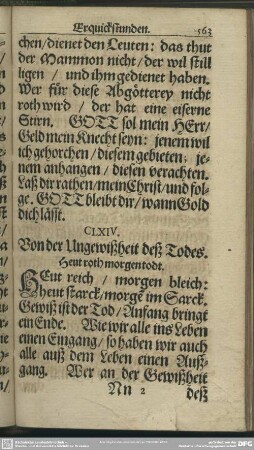 Erquickstunden. 563
chen/dienet den Leuten: das thut
der Mammon nicht/der wil still
ligen / und ihm gedienet haben.
Wer für diese Abgötterey nicht
roth wird / der hat eine eiserne
Stirn. GOTT sol mein HErr/
Geld mein Knecht seyn: jenem wil
ich gehorchen/diesem gebieten; je-
nem anhangen / diesen verachten.
Laß dir rathen/mein Christ/und fol-
ge. GOTT bleibt dir/wann Gold
dich läst.
CLXIV.
Von der Ungewißheit deß Todes.
Heut roth morgen todt.
HEut reich / morgen bleich:
heut starck/morgē im Sarck.
Gewiß ist der Tod/Anfang bringt
ein Ende. Wie wir alle ins Leben
einen Eingang/so haben wir auch
alle auß dem Leben einen Auß-
gang. Wer an der Gewißheit
Nn 2 deß
DFG